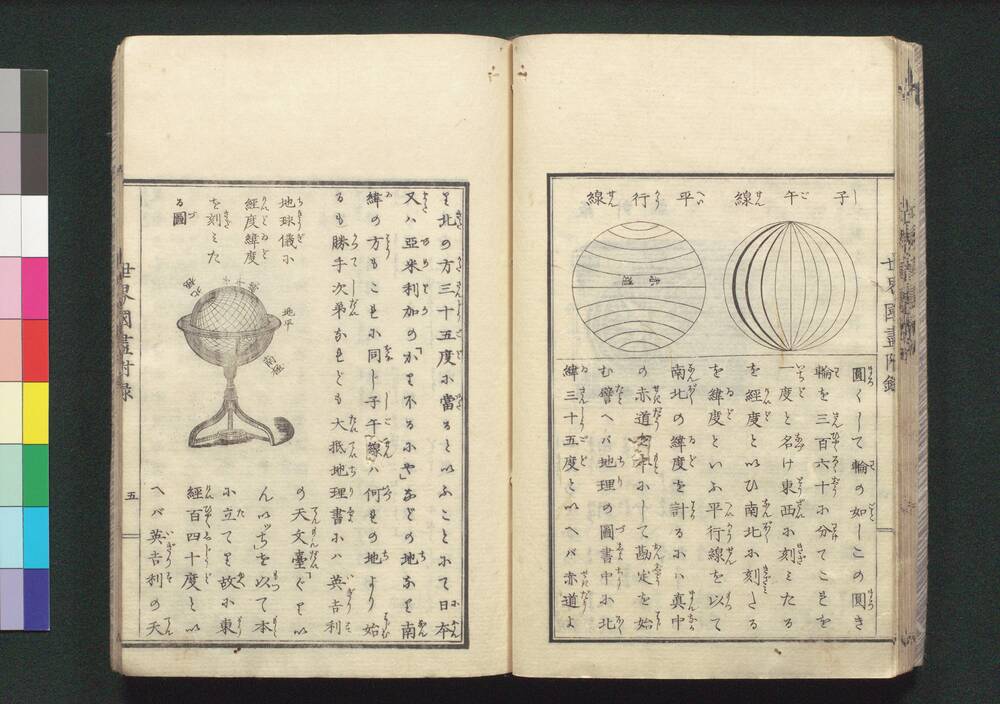 子午線
平行線
圓くして輪の如しこの圓き
輪を三百六十に分てこれを
一度と名け東西に刻ミたる
を經度といひ南北に刻ミたる
を緯度といふ平行線を以て
南北の緯度を計るにハ真中
の赤道を本にして勘定を始
む譬へバ地理の圖書中に北
緯三十五度といへバ赤道よ
世界國盡附録
り北の方三十五度に當るといふことにて日本
又ハ亞米利加の「かりほるにや」などの地なり南
緯の方もこれに同じ子午線ハ何れの地より始
るも勝手次第なれども大抵地理書にハ英吉利
の天文臺「ぐりい
んいッち」を以て本
に立てり故に東
經百四十度とい
へバ英吉利の天
地球儀に
經度緯度
を刻ミた
る圖
北極
地平
南極
世界國盡附録
五